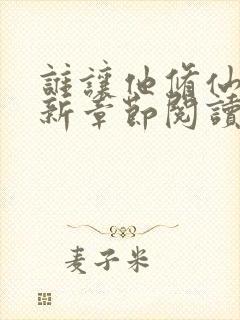 誰讓他脩仙
新章節閱讀
麦子米